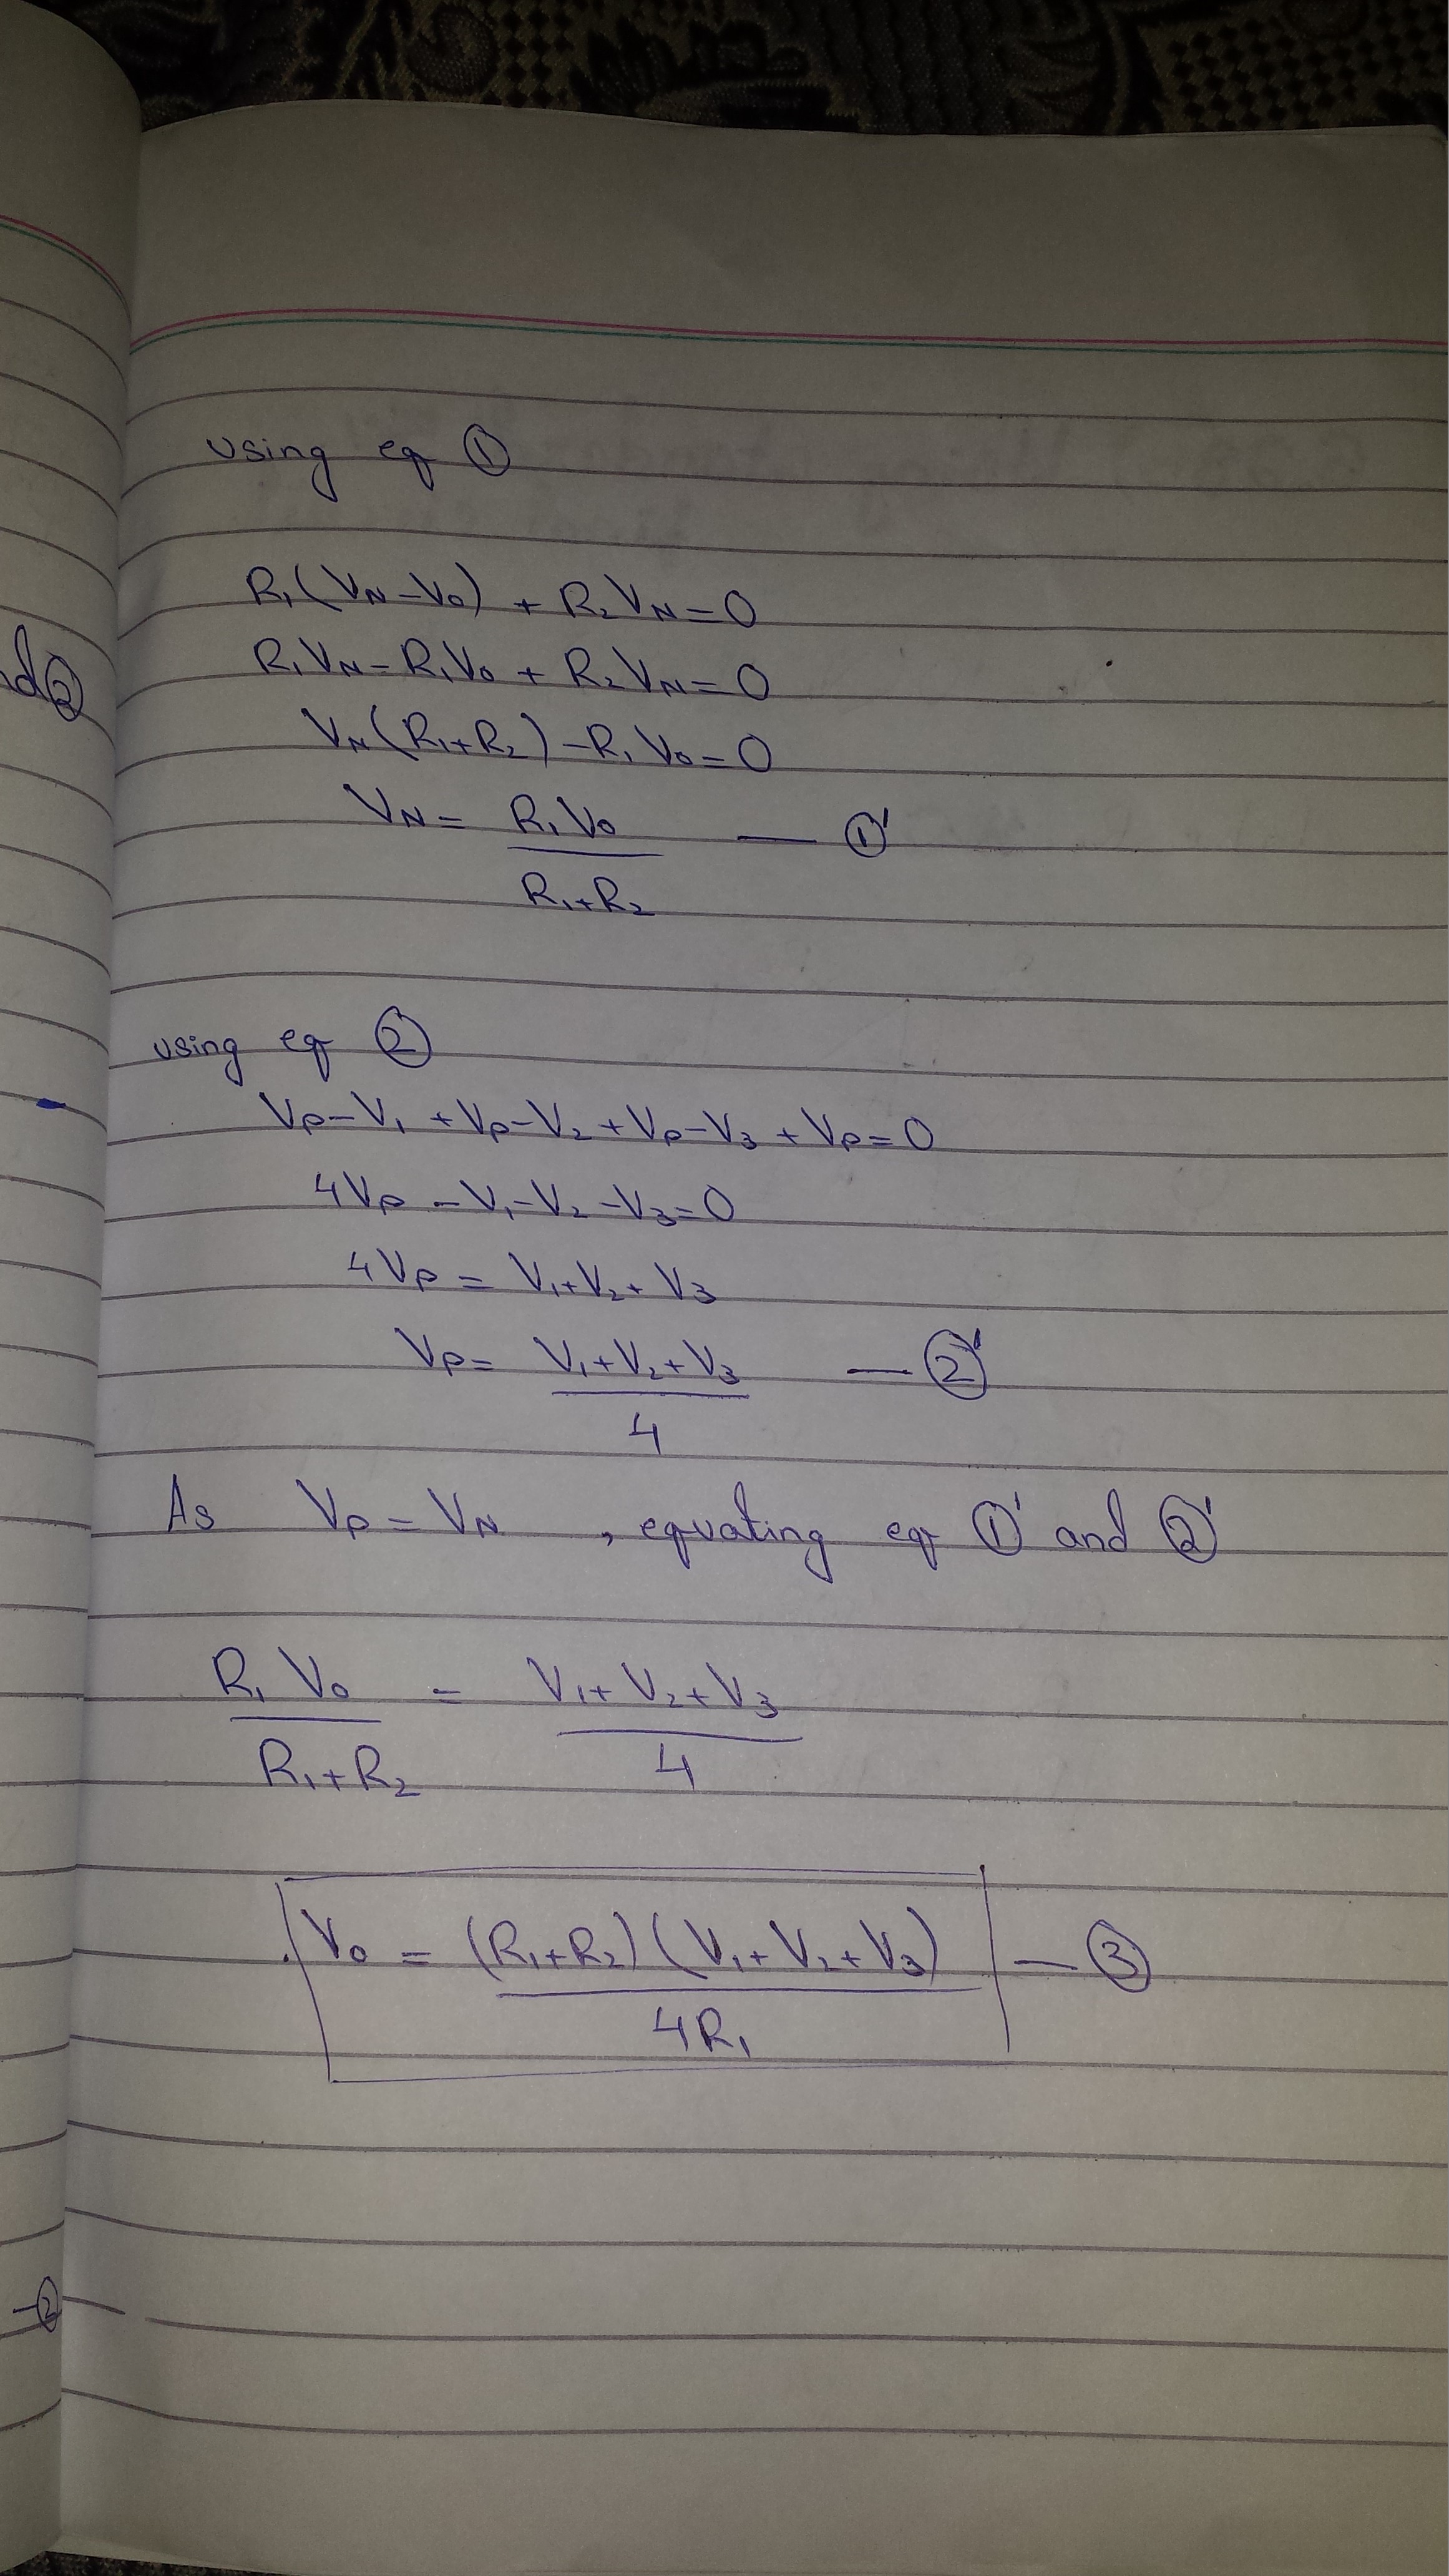 using eq ①
R₁(V_N - V₀) + R₂V_N = 0
R₁V_N - R₁V₀ + R₂V_N = 0
V_N(R₁+R₂) - R₁V₀ = 0
V_N = R₁V₀ — ①'
R₁+R₂
using eq ②
V_P - V₁ + V_P - V₂ + V_P - V₃ + V_P = 0
4V_P - V₁ - V₂ - V₃ = 0
4V_P = V₁+V₂+V₃
V_P = V₁+V₂+V₃ — ②'
4
As V_P = V_N , equating eq ①' and ②'
R₁V₀ = V₁+V₂+V₃
R₁+R₂ 4
V₀ = (R₁+R₂)(V₁+V₂+V₃) — ③
4R₁
-②